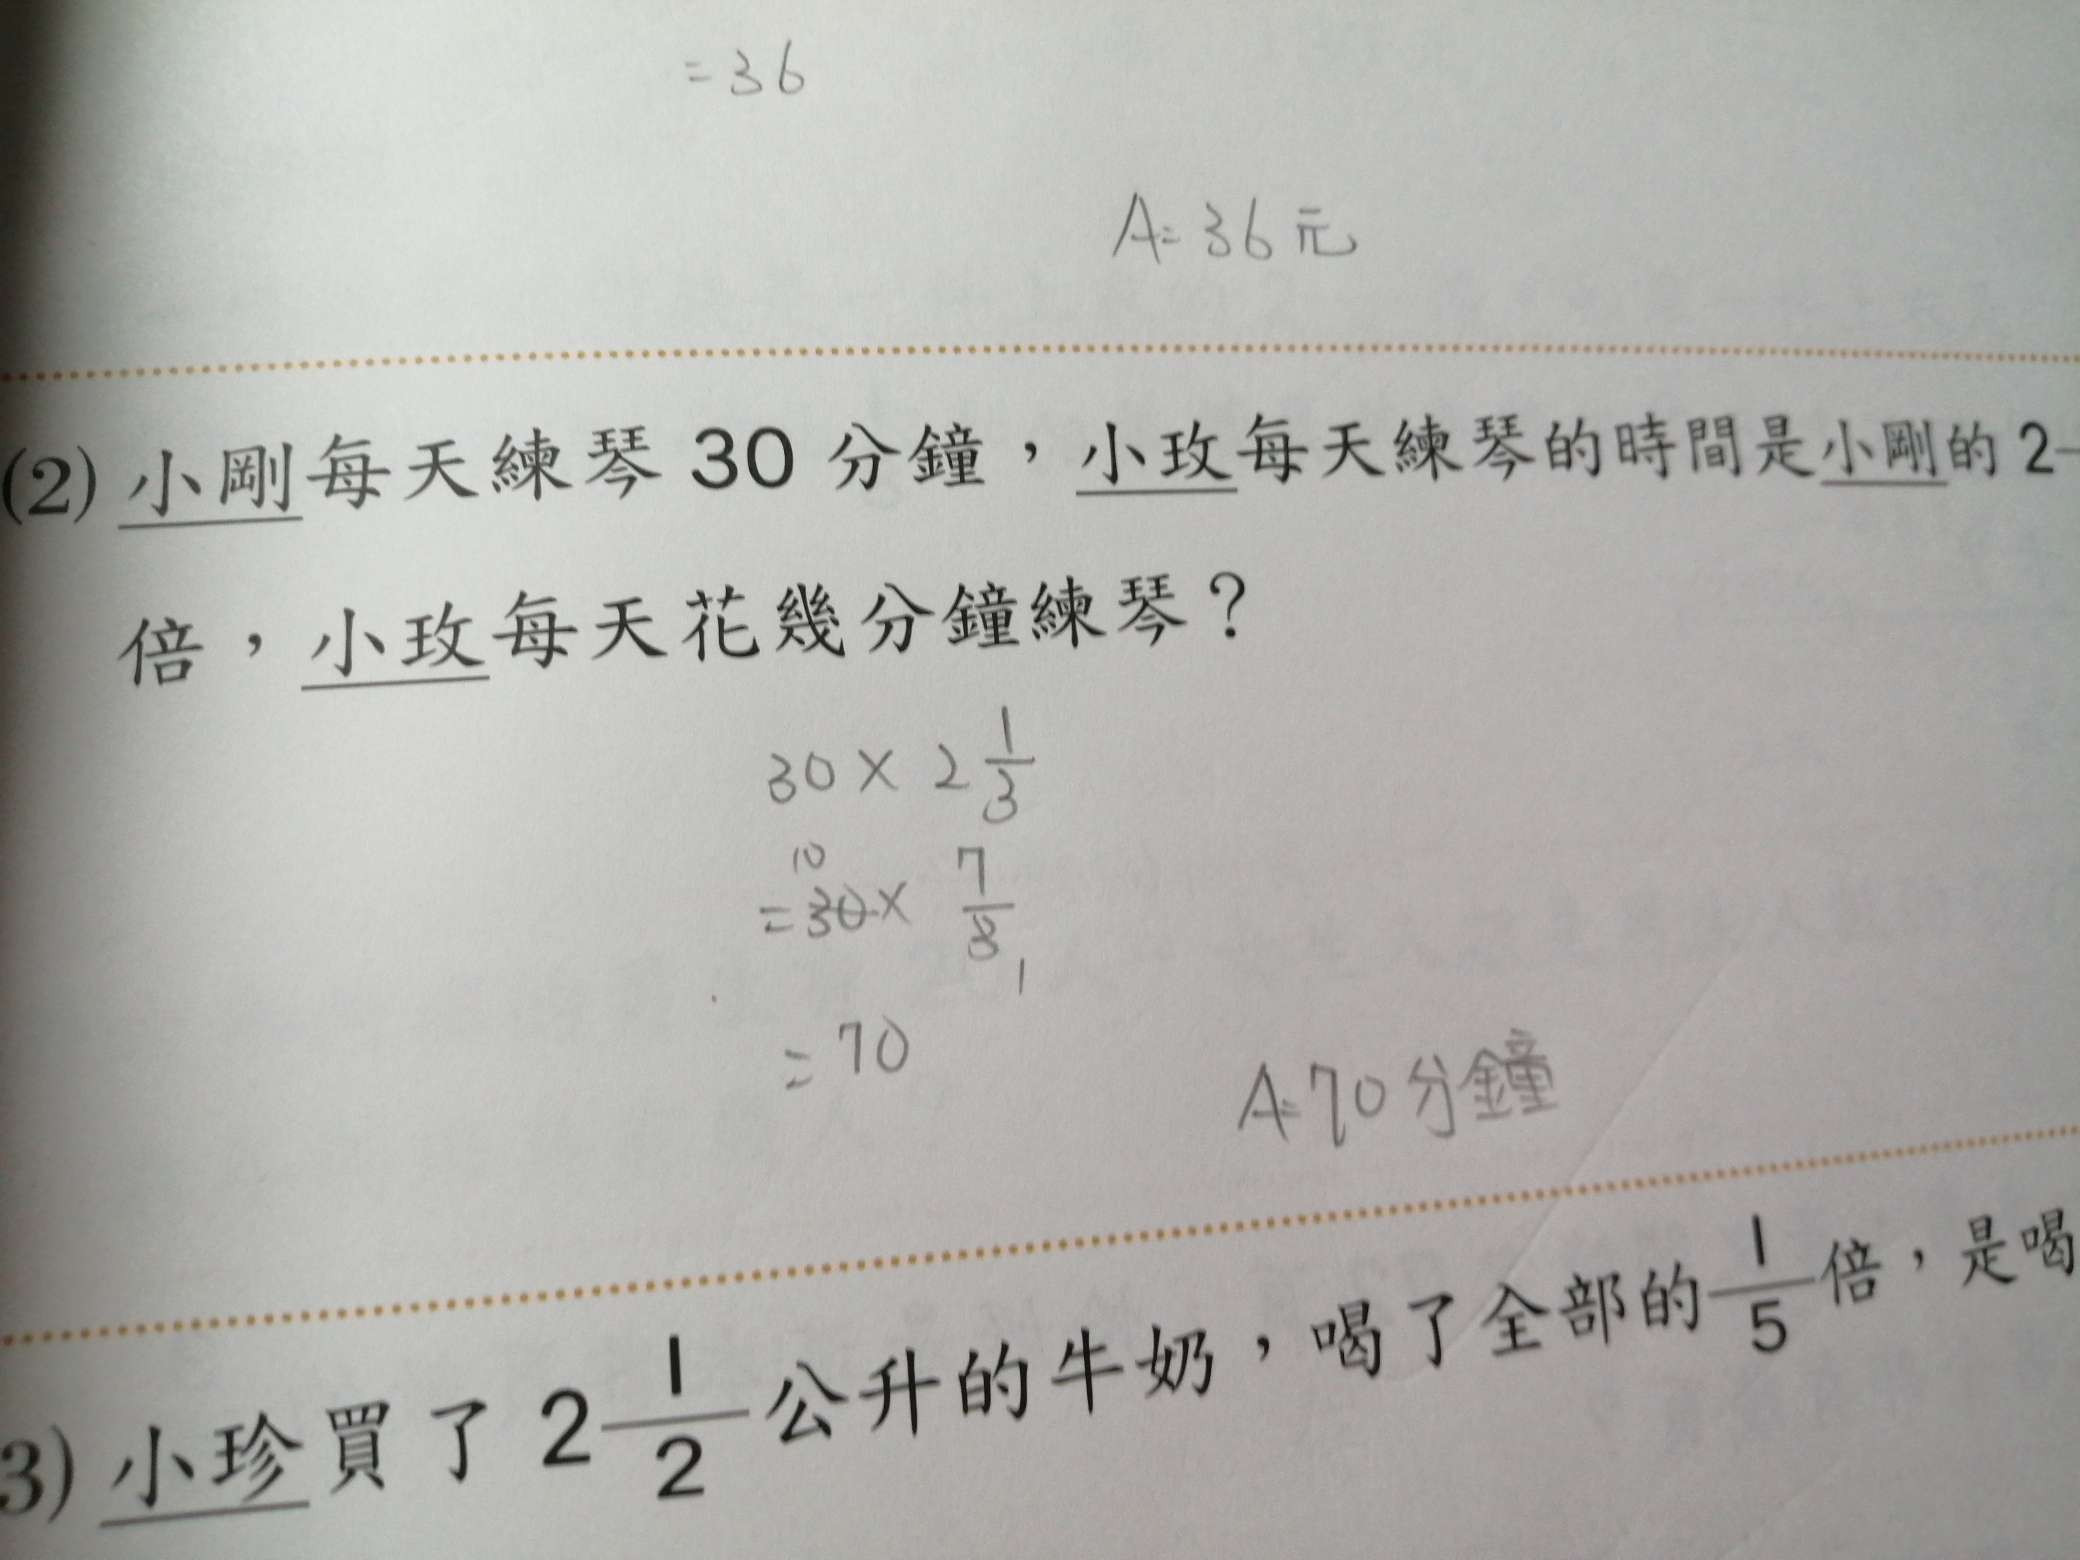 =36
A=36元
(2) 小剛每天練琴 30 分鐘，小玫每天練琴的時間是小剛的 2
倍，小玫每天花幾分鐘練琴？
30 × 2 1/3
10
=30× 7/3
1
=70
A=70分鐘
3) 小珍買了 2 1/2 公升的牛奶，喝了全部的 1/5 倍，是喝